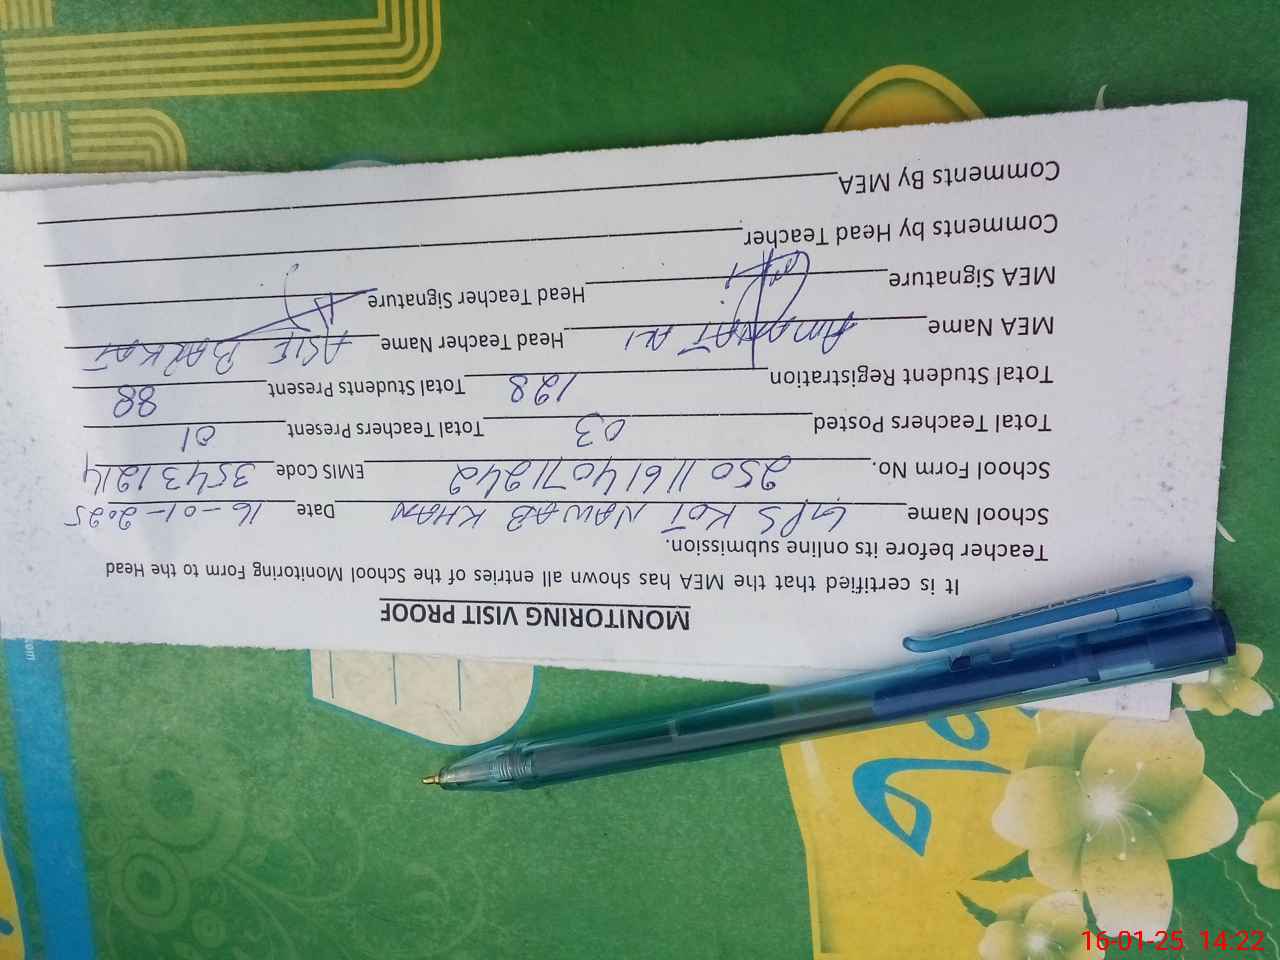 MONITORING VISIT PROOF
It is certified that the MEA has shown all entries of the School Monitoring Form to the Head
Teacher before its online submission.
School Name GPS KOT NAWAB KHAN Date 16-01-2025
School Form No. 250116140711242 EMIS Code 35431214
Total Teachers Posted 03 Total Teachers Present 01
Total Student Registration 128 Total Students Present 88
MEA Name AMANAT ALI Head Teacher Name ASIF BARKAT
MEA Signature Head Teacher Signature
Comments by Head Teacher
Comments By MEA
16-01-25 14:22